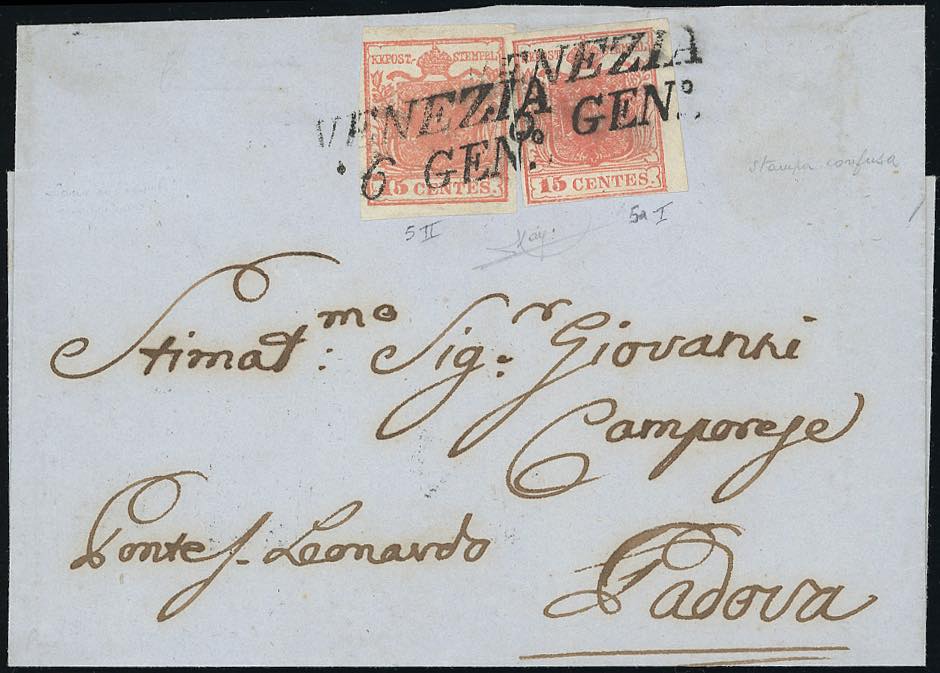 KKPOST-STEMPEL
15 CENTES
15 CENTES
VENEZIA
6 GEN.º
VENEZIA
6 GEN.º
stampa confusa
5 II
5a I
Stimat:mo Sig.r Giovanni
Camporese
Ponte S. Leonardo
Padova